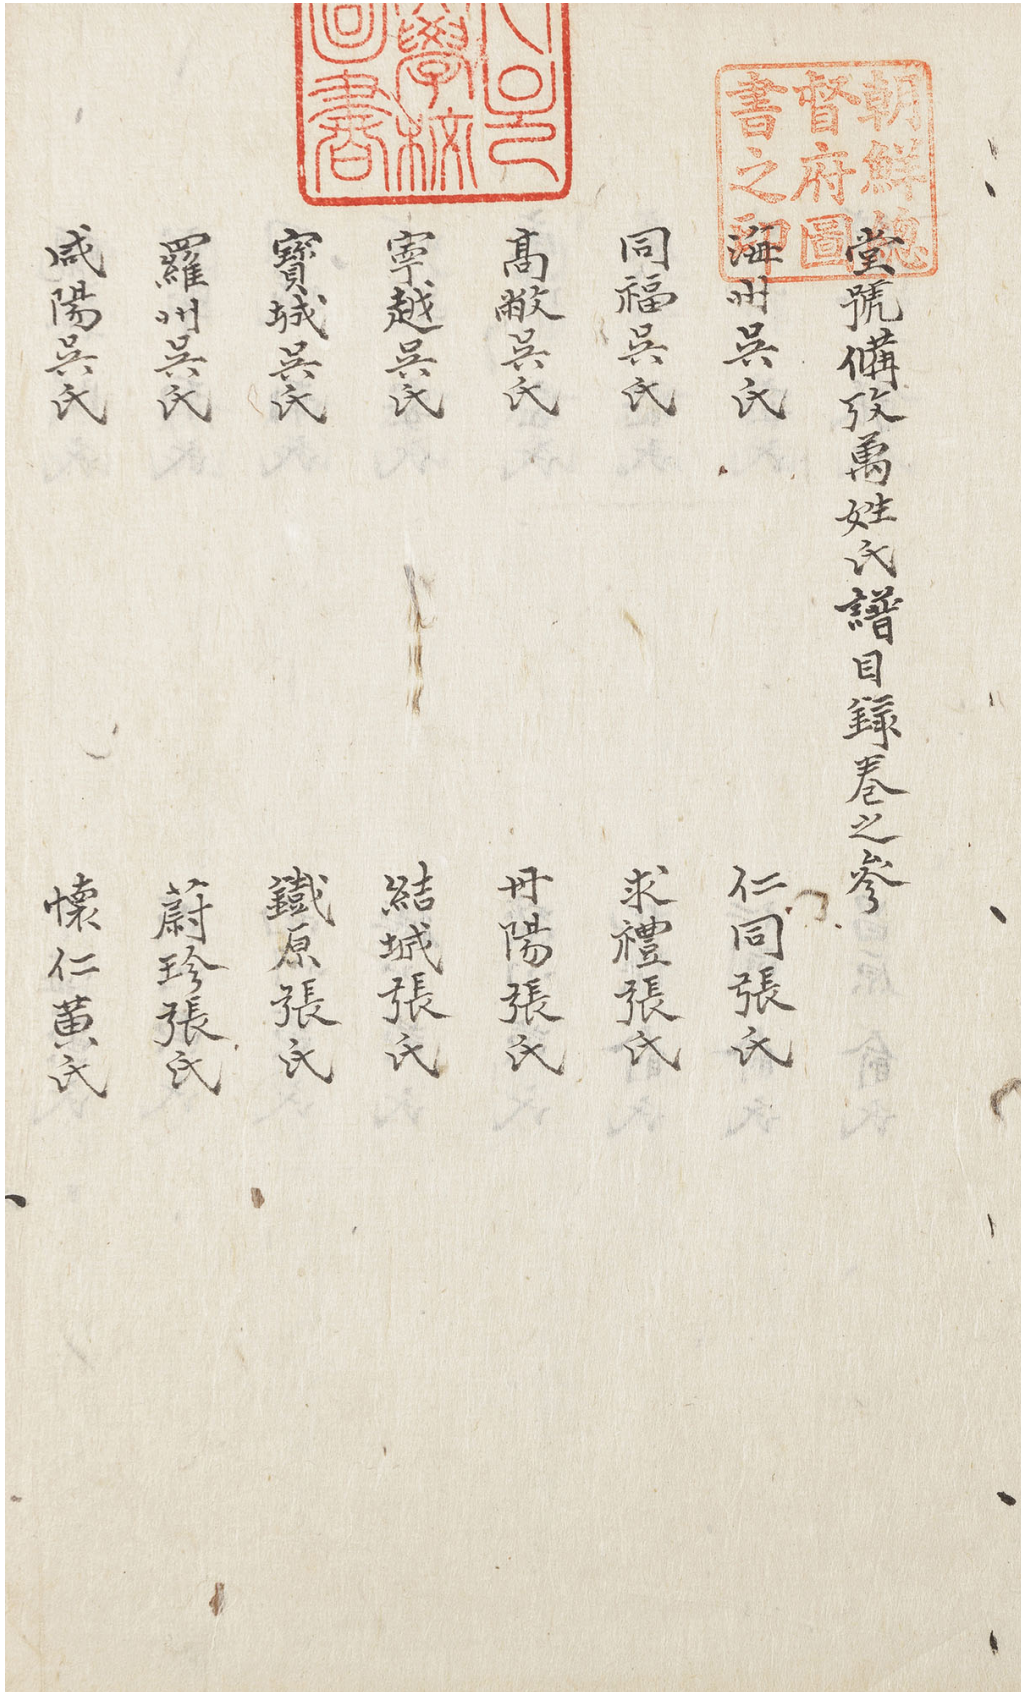 朝鮮總
督府圖
書之印
學校
圖書
堂號備攷萬姓氏譜目錄卷之參
海州吳氏
仁同張氏
同福吳氏
求禮張氏
高敞吳氏
丹陽張氏
寧越吳氏
結城張氏
寶城吳氏
鐵原張氏
羅州吳氏
蔚珍張氏
咸陽吳氏
懷仁黃氏